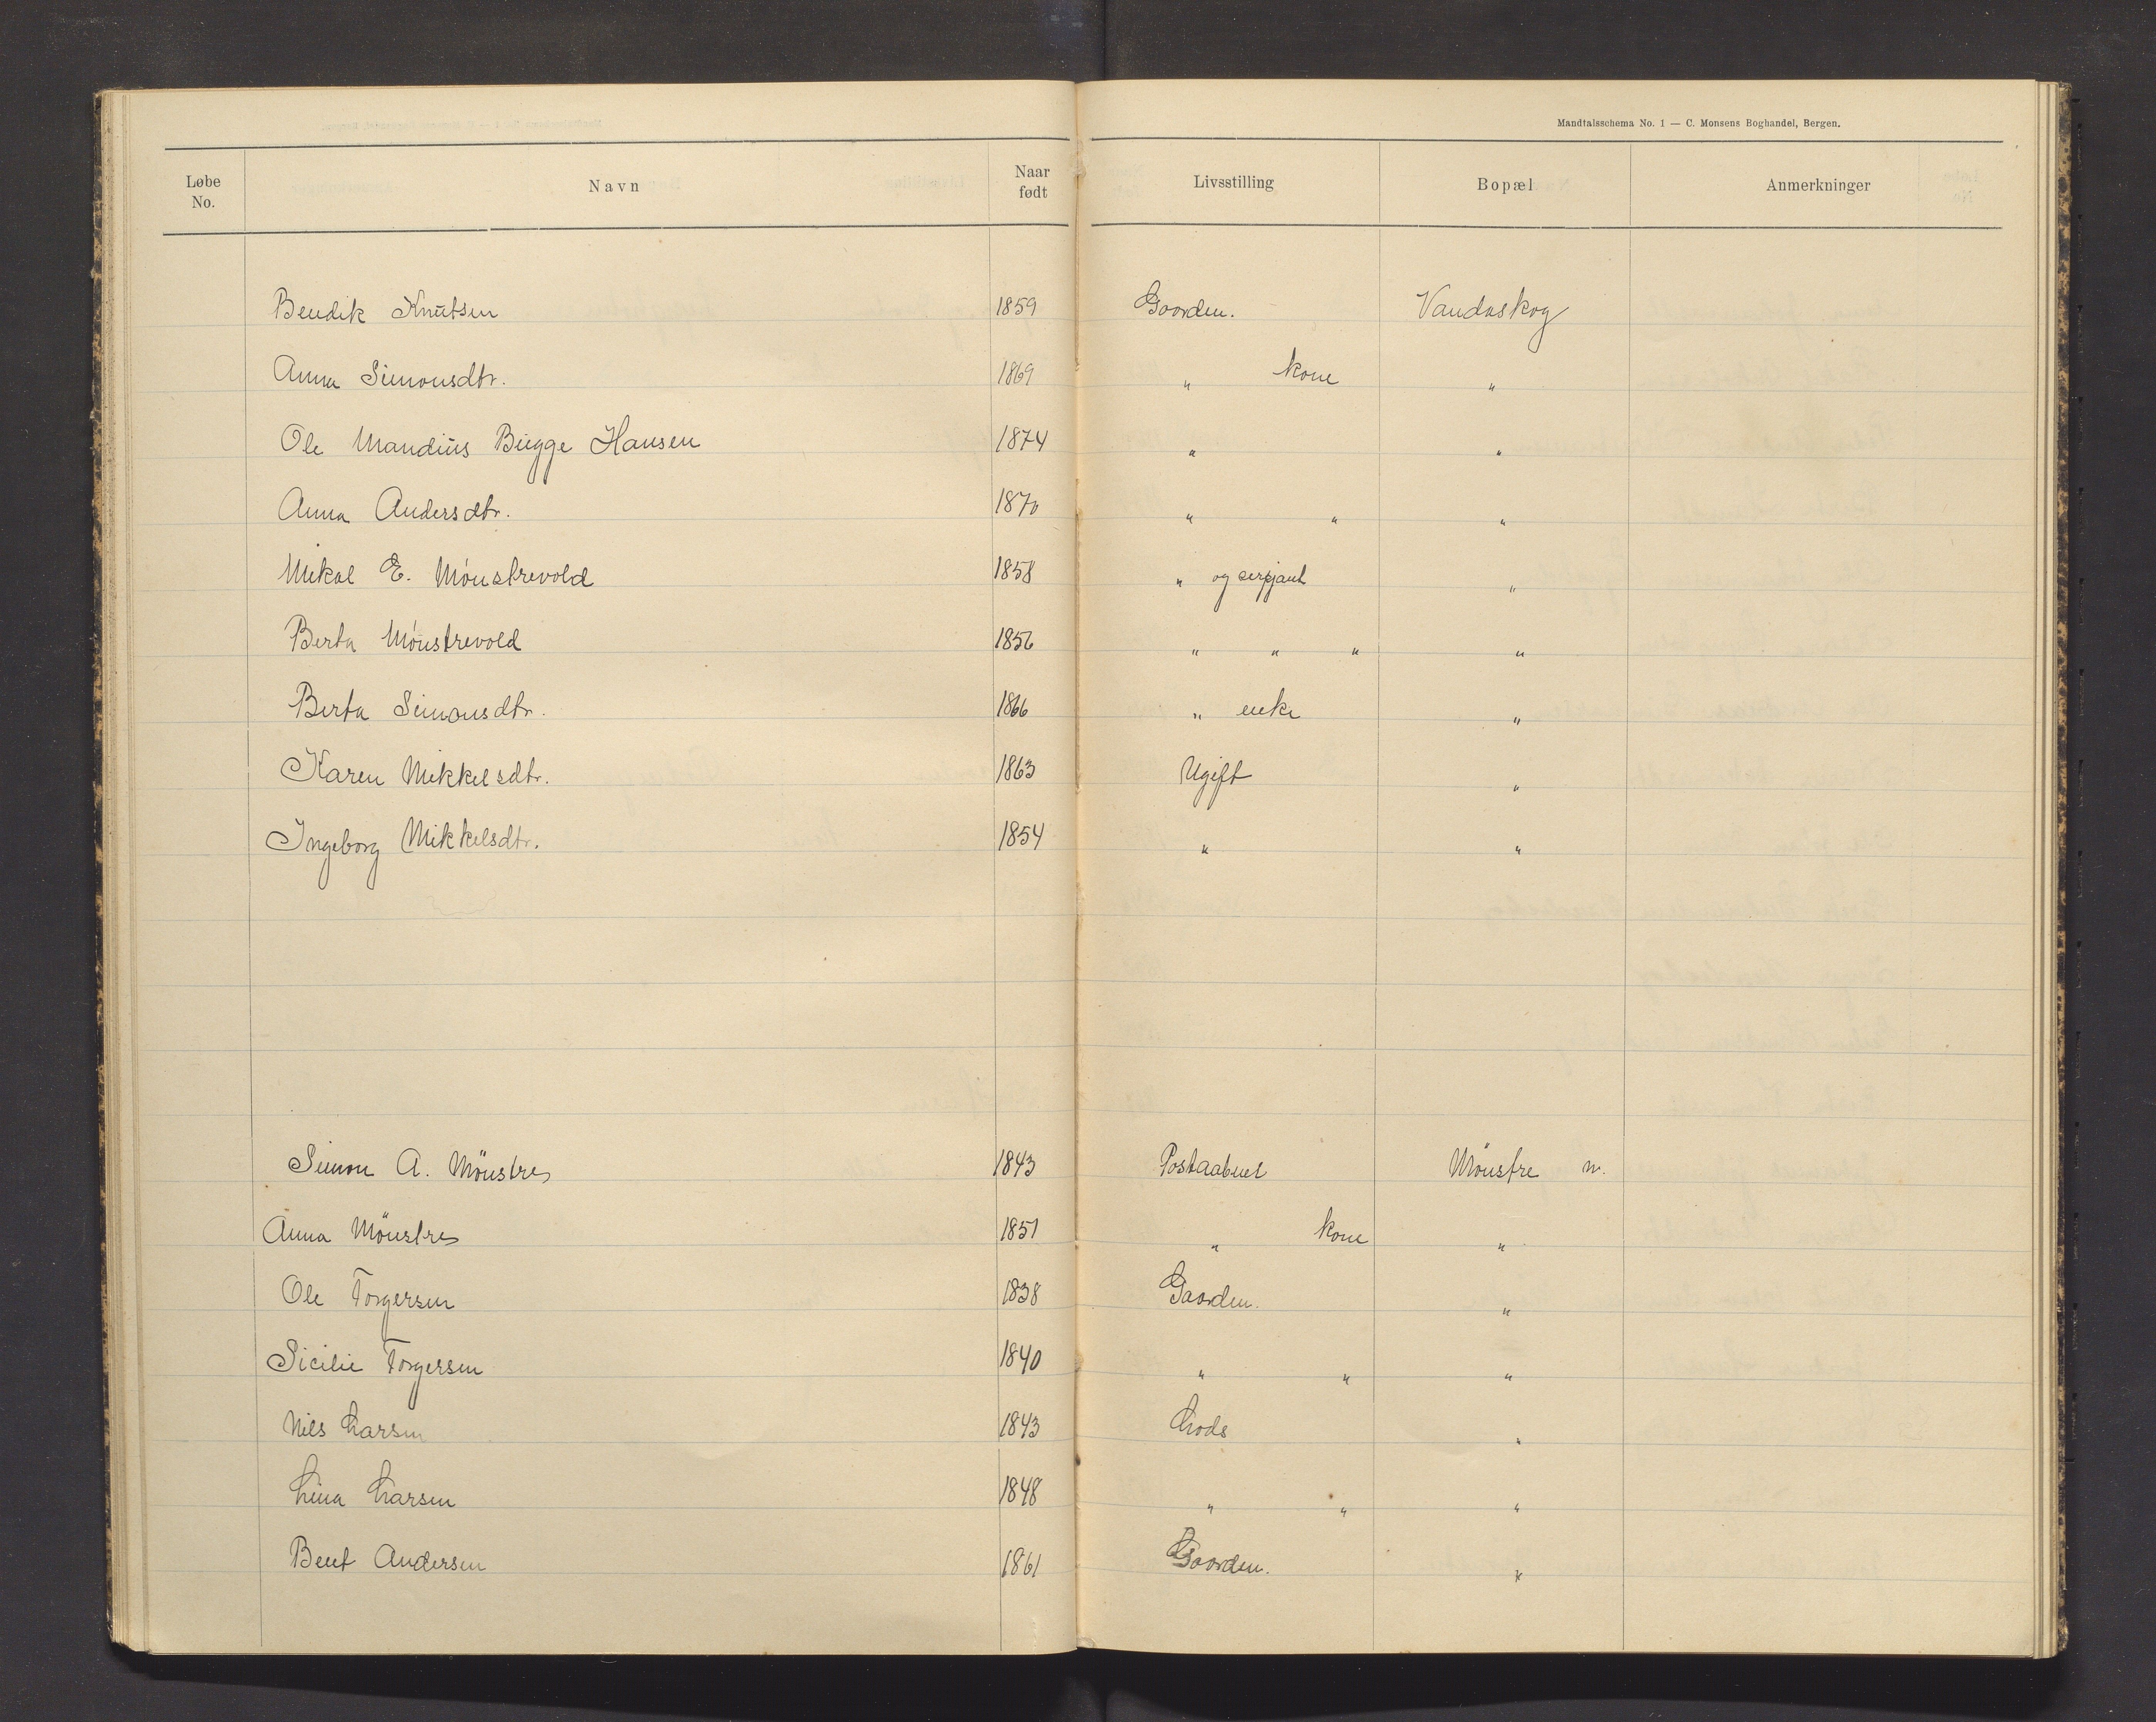 Mandtalsschema No. 1 — C. Monsens Boghandel, Bergen.
Løbe No. Navn Naar født Livsstilling Bopæl Anmerkninger
Bendik Knutsen 1859 Gaardm. Vandaskog
Anna Simonsdtr. 1869 " kone "
Ole Mandius Bugge Hansen 1874 " "
Anna Andersdtr. 1870 " " "
Mikal E. Mönstrevold 1858 " og serjant "
Berta Mönstrevold 1856 " " " "
Berta Simonsdtr. 1866 " enke "
Karen Mikkelsdtr. 1863 Ugift "
Ingeborg Mikkelsdtr. 1854 " "
Simon A. Mönstre 1843 Postaabner Mönstre n.
Anna Mönstre 1851 " kone "
Ole Torgersen 1838 Gaardm. "
Sicilie Torgersen 1840 " " "
Nils Larsen 1843 Lods "
Lina Larsen 1848 " " "
Bent Andersen 1861 Gaardm. "